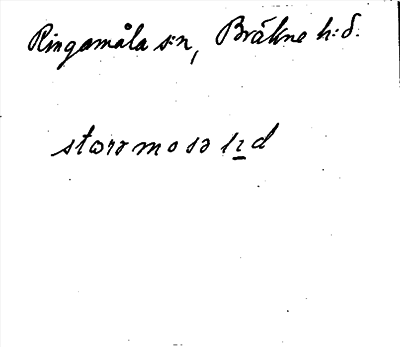 Ringamåla s:n, Bräkne h:d.
starə mosə lıd